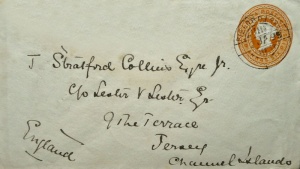 J Stratford Collins Eyre Jr.
c/o Lester & Lester Esqr
9 The Terrace
Jersey
Channel Islands
England